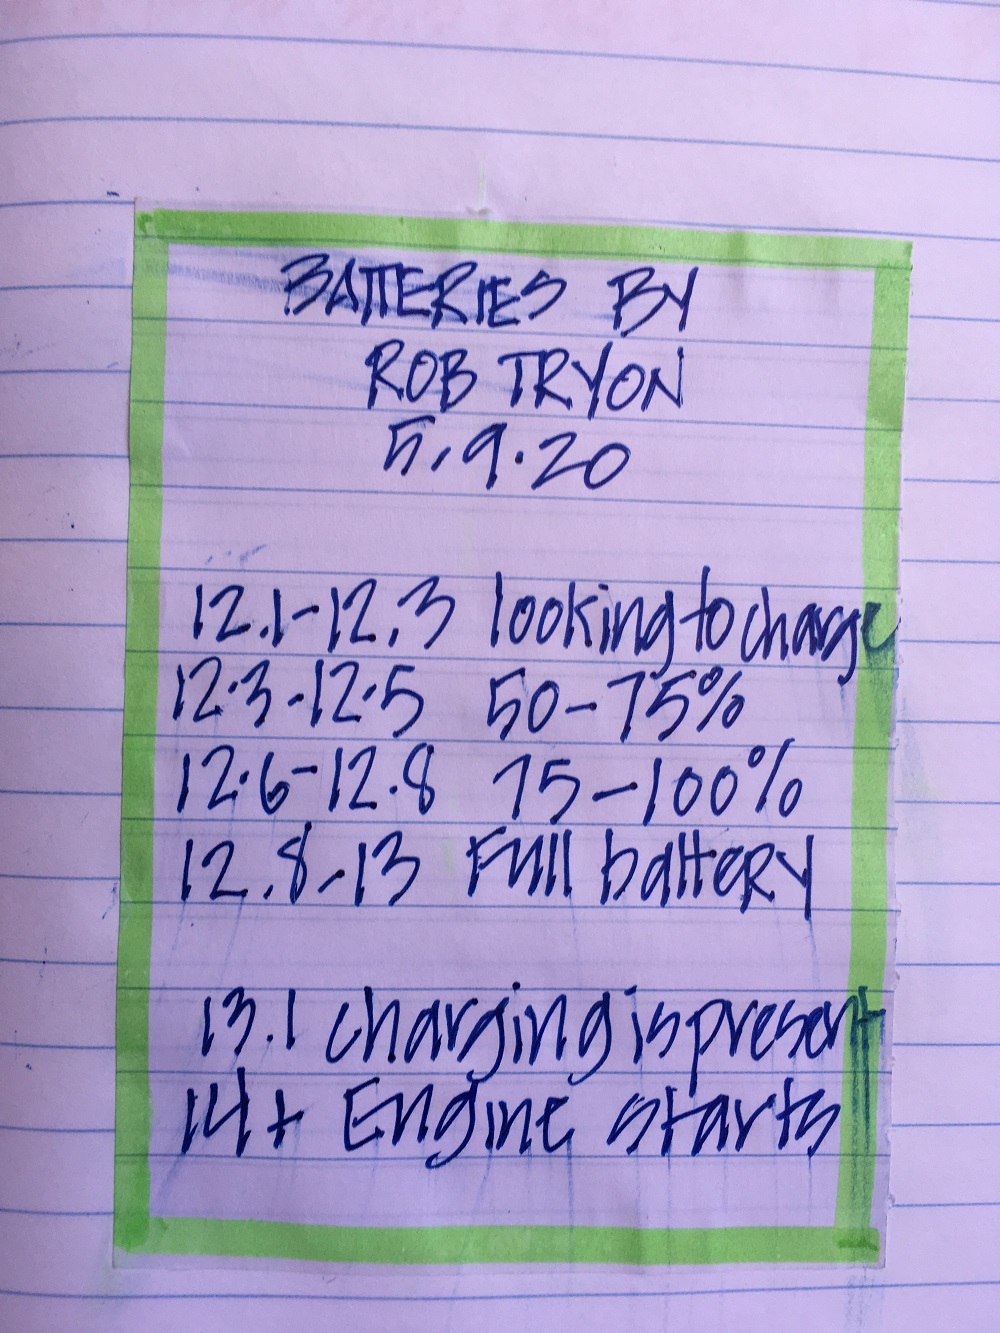 BATTERIES BY
ROB TRYON
5.9.20
12.1-12.3 looking to charge
12.3-12.5 50-75%
12.6-12.8 75-100%
12.8-13 Full battery
13.1 charging is present
14+ Engine starts